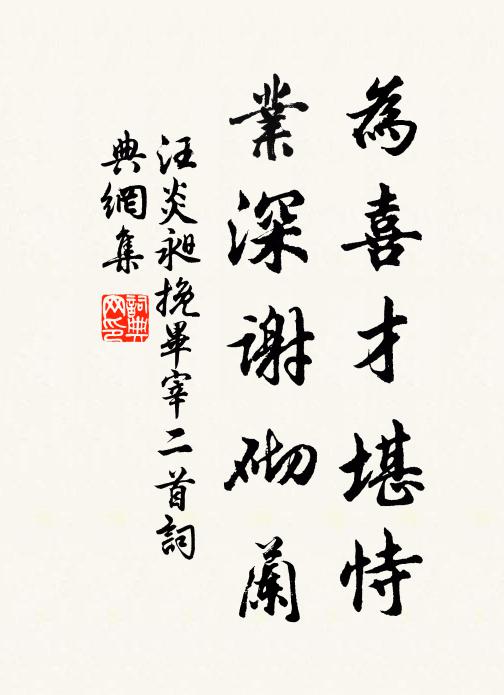 為喜才堪恃
業深謝砌蘭
汪炎昶挽畢宰二首詞
典網集
詞典
网印